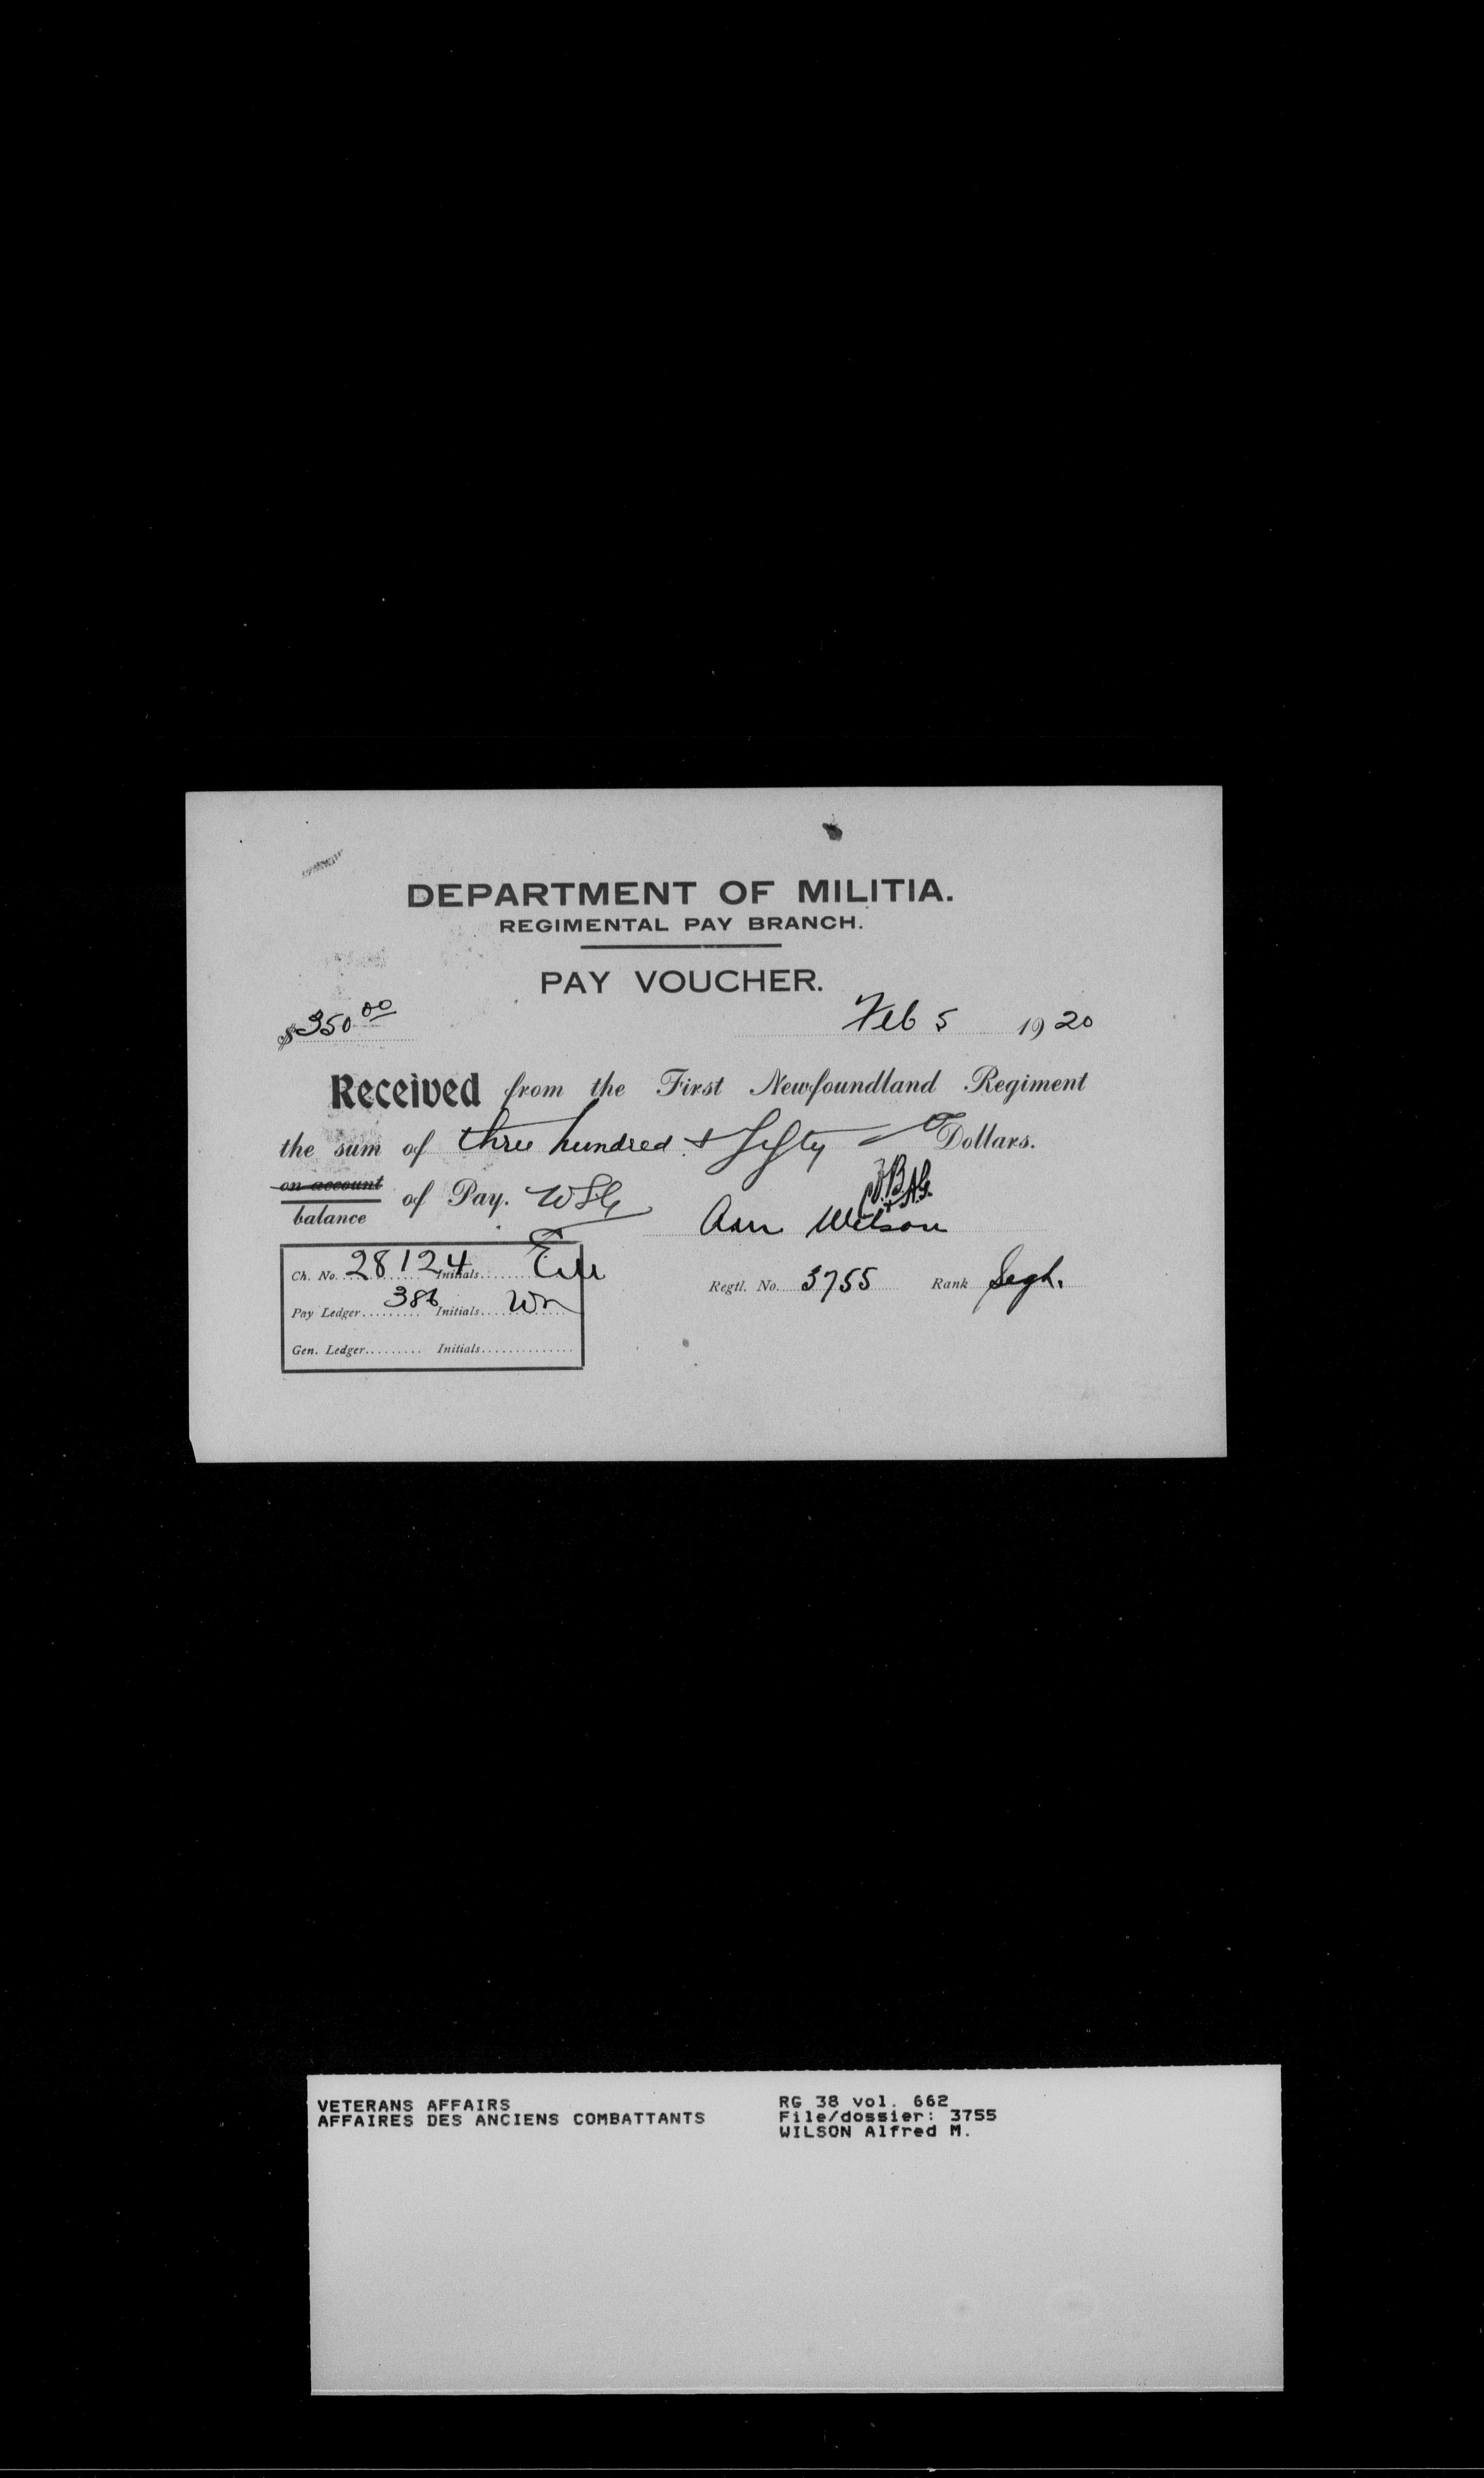 DEPARTMENT OF MILITIA.
REGIMENTAL PAY BRANCH.
PAY VOUCHER.
$350 00 Feb 5 1920
Received from the First Newfoundland Regiment
the sum of three hundred & fifty Dollars.
on account
balance of Pay. WSG
Wilson
Ch. No. 28124 Initials
Regtl. No. 3755 Rank Sergt.
Pay Ledger 386 Initials
Gen. Ledger Initials
VETERANS AFFAIRS
AFFAIRES DES ANCIENS COMBATTANTS
RG 38 vol. 662
File/dossier: 3755
WILSON Alfred M.